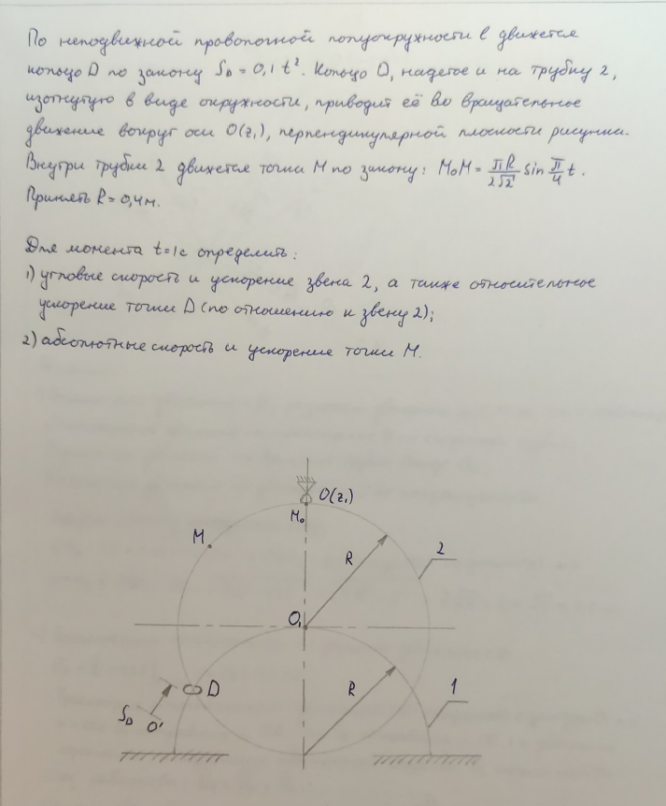 По неподвижной проволочной полуокружности 1 движется
кольцо D по закону S_D = 0,1 t². Кольцо D, надетое и на трубку 2,
изогнутую в виде окружности, приводит её во вращательное
движение вокруг оси O(z₁), перпендикулярной плоскости рисунка.
Внутри трубки 2 движется точка M по закону: M₀M = πR/2√2 sin π/4 t.
Принять R = 0,4м.
Для момента t=1с определить:
1) угловые скорость и ускорение звена 2, а также относительное
ускорение точки D (по отношению к звену 2);
2) абсолютные скорость и ускорение точки M.
O(z₁)
M₀
M
R
2
O₁
D
R
1
S_D
O'